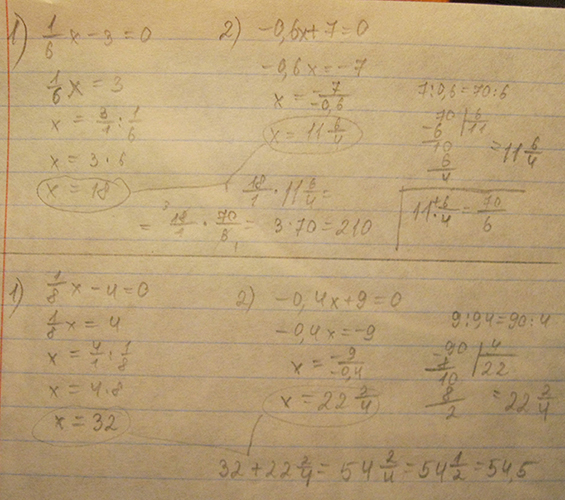 1) 1/6 x - 3 = 0
1/6 x = 3
x = 3/1 : 1/6
x = 3 · 6
x = 18
2) -0,6x + 7 = 0
-0,6x = -7
x = -7/-0,6
x = 11 6/4
7 : 0,6 = 70 : 6
70 | 6
-6 | 11
70
6
4
= 11 6/4
18/1 · 11 6/4 =
= 18/1 · 70/6 = 3 · 70 = 210
11 +6/4 = 70/6
1) 1/8 x - 4 = 0
1/8 x = 4
x = 4/1 : 1/8
x = 4 · 8
x = 32
2) -0,4x + 9 = 0
-0,4x = -9
x = -9/-0,4
x = 22 2/4
9 : 0,4 = 90 : 4
-90 | 4
8 | 22
10
8
2
= 22 2/4
32 + 22 2/4 = 54 2/4 = 54 1/2 = 54,5